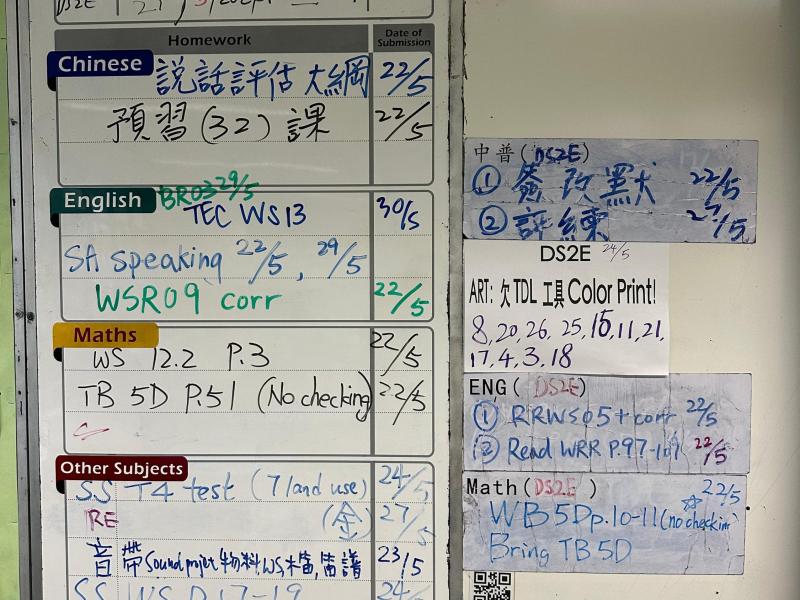 Homework
Date of Submission
Chinese
說話評估 大綱 22/5
預習(32)課 22/5
English
BR03 29/5
TEC WS13 30/5
SA speaking 22/5, 29/5
WSR09 corr 22/5
Maths
WS 12.2 P.3 22/5
TB 5D P.51 (No checking) 22/5
Other Subjects
SS T4 test (7 land use) 24/5
RE (金) 27/5
音 帶Sound projet物料,WS,木笛,笛譜 23/5
SS WS P.17-19 24/
中普(DS2E)
① 簽改默 22/5
② 評練 27/5
DS2E 24/5
ART: 欠 TDL 工具 Color Print!
8, 20, 26, 25, 15, 11, 21,
17, 4, 3, 18
ENG( DS2E)
① RRWS05+corr 22/5
② Read WRR P.97-101 22/5
Math(DS2E )
☆ 22/5
WB 5D p.10-11(no checkim)
Bring TB 5D